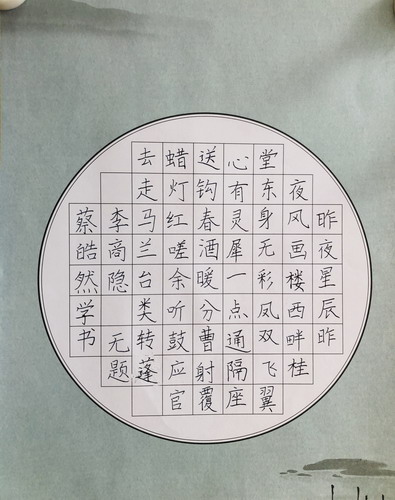 昨夜星辰昨
夜风画楼西畔桂
堂东身无彩凤双飞翼
心有灵犀一点通隔座
送钩春酒暖分曹射覆
蜡灯红嗟余听鼓应官
去走马兰台类转蓬
李商隐 无题
蔡皓然学书